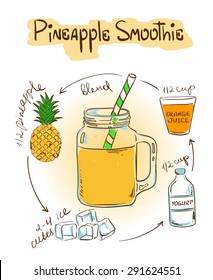 Pineapple Smoothie
1/2 pineapple
blend
1/2 cup
ORANGE
JUICE
1/2 cup
YOGURT
2-4 ice
cubes
shutterstock
www.shutterstock.com · 291624551